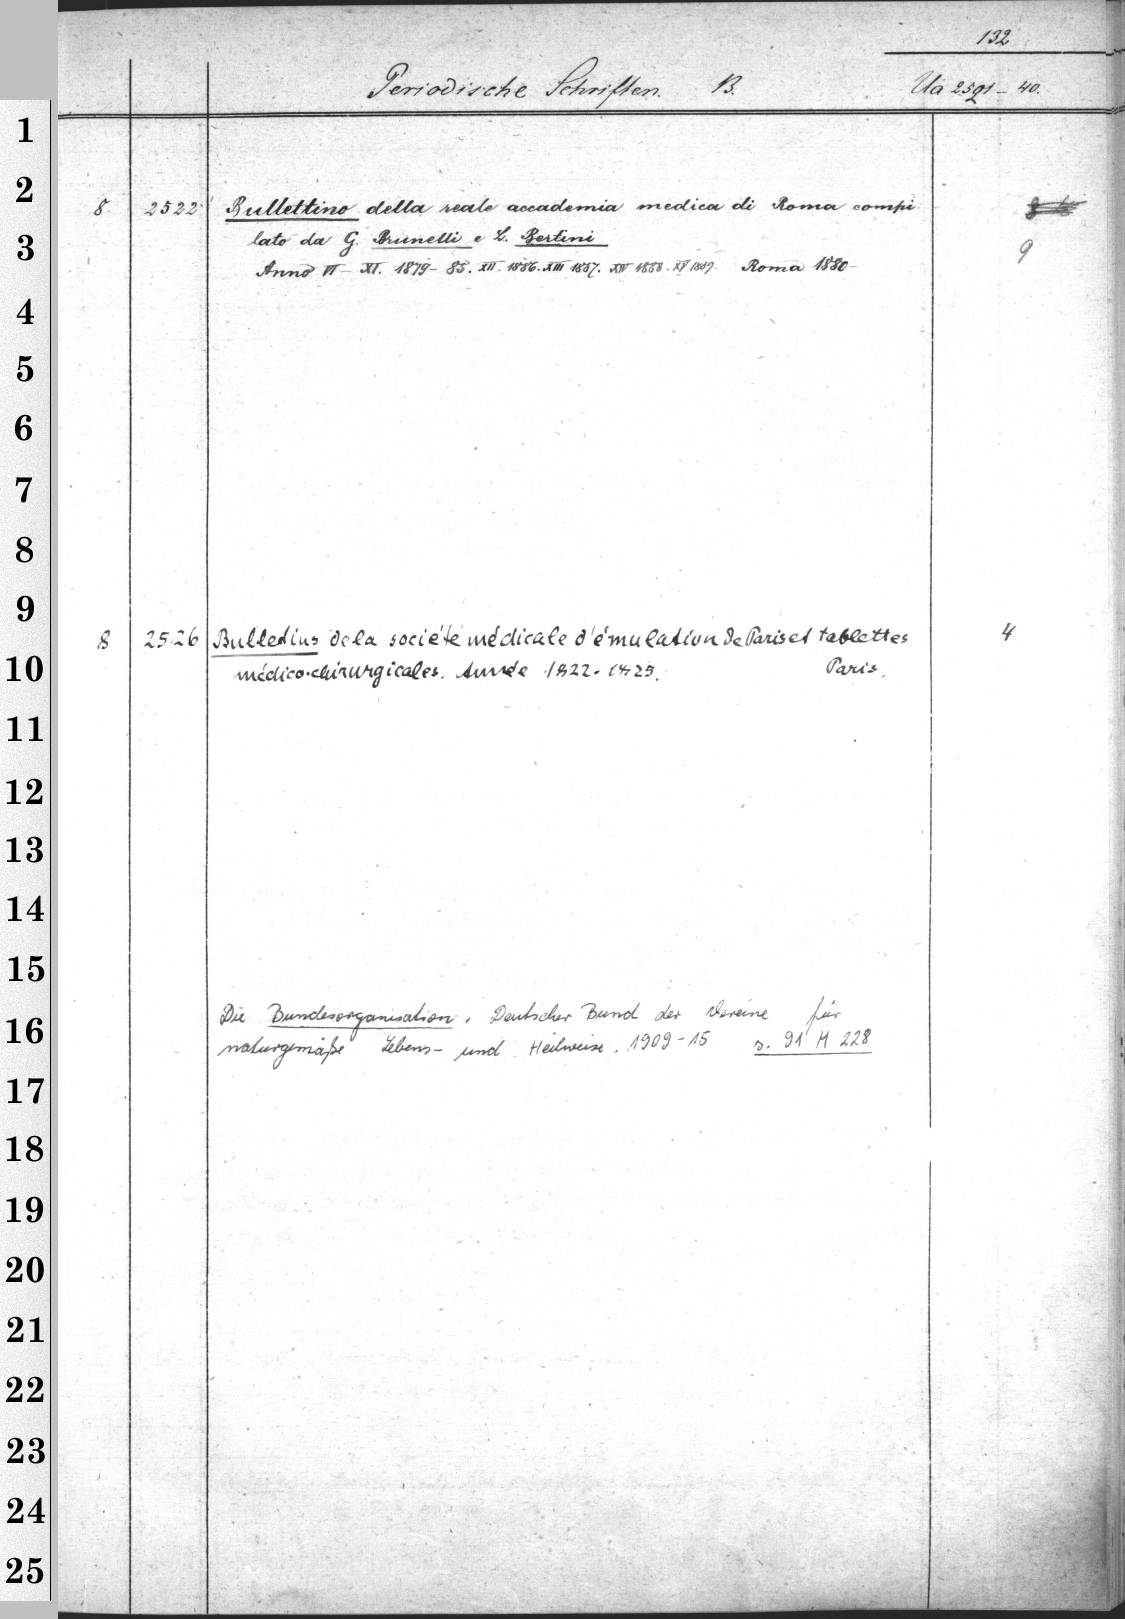 132
Periodische Schriften. B. Ua 2521 - 40.
1
2
8 2522 Bullettino della reale accademia medica di Roma compi
lato da G. Brunelli e L. Bertini
3
9
Anno VI - XI. 1879 - 85. XII. 1886. XIII 1887. XIV 1888. XV 1889. Roma 1880 -
4
5
6
7
8
9
8 2526 Bulletins de la société médicale d'émulation de Paris et tablettes 4
10
médico-chirurgicales. Année 1822 - 1825. Paris.
11
12
13
14
15
Die Bundesorganisation. Deutscher Bund der Vereine für
16
naturgemäße Lebens- und Heilweise. 1909 - 15 s. 91 H 228
17
18
19
20
21
22
23
24
25